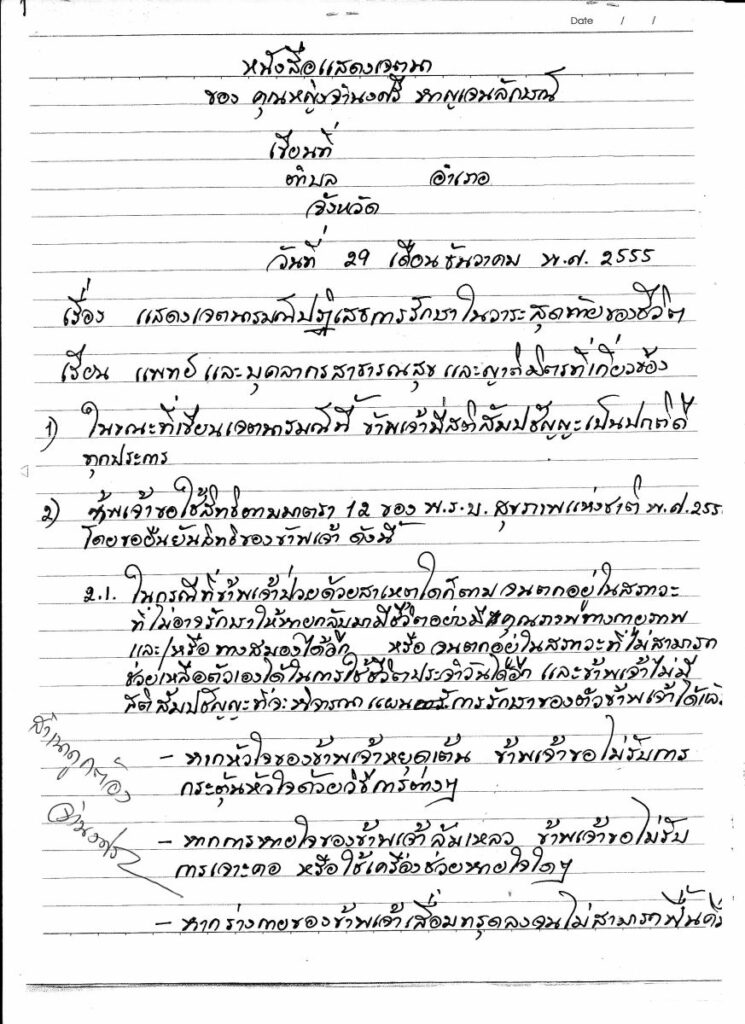 1
Date / /
หนังสือแสดงเจตนา
ของ คุณหญิงจำนงศรี หาญเจนลักษณ์
เขียนที่
ตำบล อำเภอ
จังหวัด
วันที่ 29 เดือน ธันวาคม พ.ศ. 2555
เรื่อง แสดงเจตนารมณ์ปฏิเสธการรักษาในวาระสุดท้ายของชีวิต
เรียน แพทย์ และบุคลากรสาธารณสุข และญาติมิตรที่เกี่ยวข้อง
1) ในขณะที่เขียนเจตนารมณ์นี้ ข้าพเจ้ามีสติสัมปชัญญะเป็นปกติดี
ทุกประการ
2) ข้าพเจ้าขอใช้สิทธิตามมาตรา 12 ของ พ.ร.บ. สุขภาพแห่งชาติ พ.ศ. 255
โดยขอยืนยันสิทธิของข้าพเจ้า ดังนี้
2.1. ในกรณีที่ข้าพเจ้าป่วยด้วยสาเหตุใดก็ตาม จนตกอยู่ในสภาวะ
ที่ไม่อาจรักษาให้หายกลับมามีชีวิตอย่างมีคุณภาพทางกายภาพ
และ/หรือ ทางสมองได้อีก หรือ จนตกอยู่ในสภาวะที่ไม่สามารถ
ช่วยเหลือตัวเองได้ในการใช้ชีวิตประจำวันได้อีก และข้าพเจ้าไม่มี
สติสัมปชัญญะที่จะพิจารณาแผนการรักษาของตัวข้าพเจ้าได้แล้ว
- หากหัวใจของข้าพเจ้าหยุดเต้น ข้าพเจ้าขอไม่รับการ
กระตุ้นหัวใจด้วยวิธีการต่างๆ
- หากการหายใจของข้าพเจ้าล้มเหลว ข้าพเจ้าขอไม่รับ
การเจาะคอ หรือใช้เครื่องช่วยหายใจใดๆ
- หากร่างกายของข้าพเจ้าเสื่อมทรุดลงจนไม่สามารถฟื้นคื
สำเนาถูกต้อง
จำนงศรี